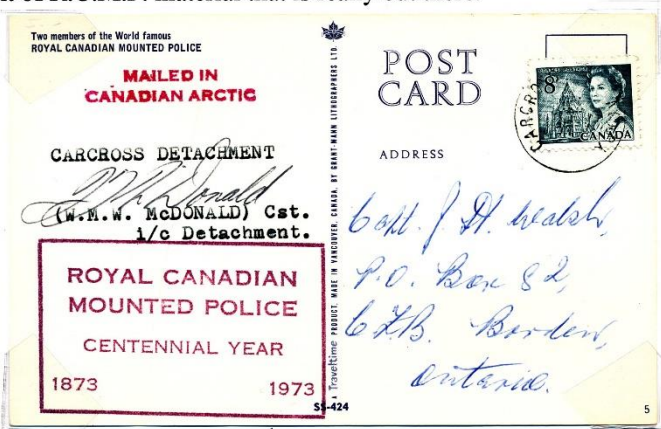 Two members of the World famous
ROYAL CANADIAN MOUNTED POLICE
MAILED IN
CANADIAN ARCTIC
CARCROSS DETACHMENT
(W.M.W. McDONALD) Cst.
i/c Detachment.
ROYAL CANADIAN
MOUNTED POLICE
CENTENNIAL YEAR
1873 1973
SS-424
A Traveltime PRODUCT, MADE IN VANCOUVER, CANADA, BY GRANT-MANN LITHOGRAPHERS LTD.
POST
CARD
ADDRESS
8
CANADA
J. H. Walsh,
P.O. Box 82,
C.F.B. Borden,
Ontario.
5